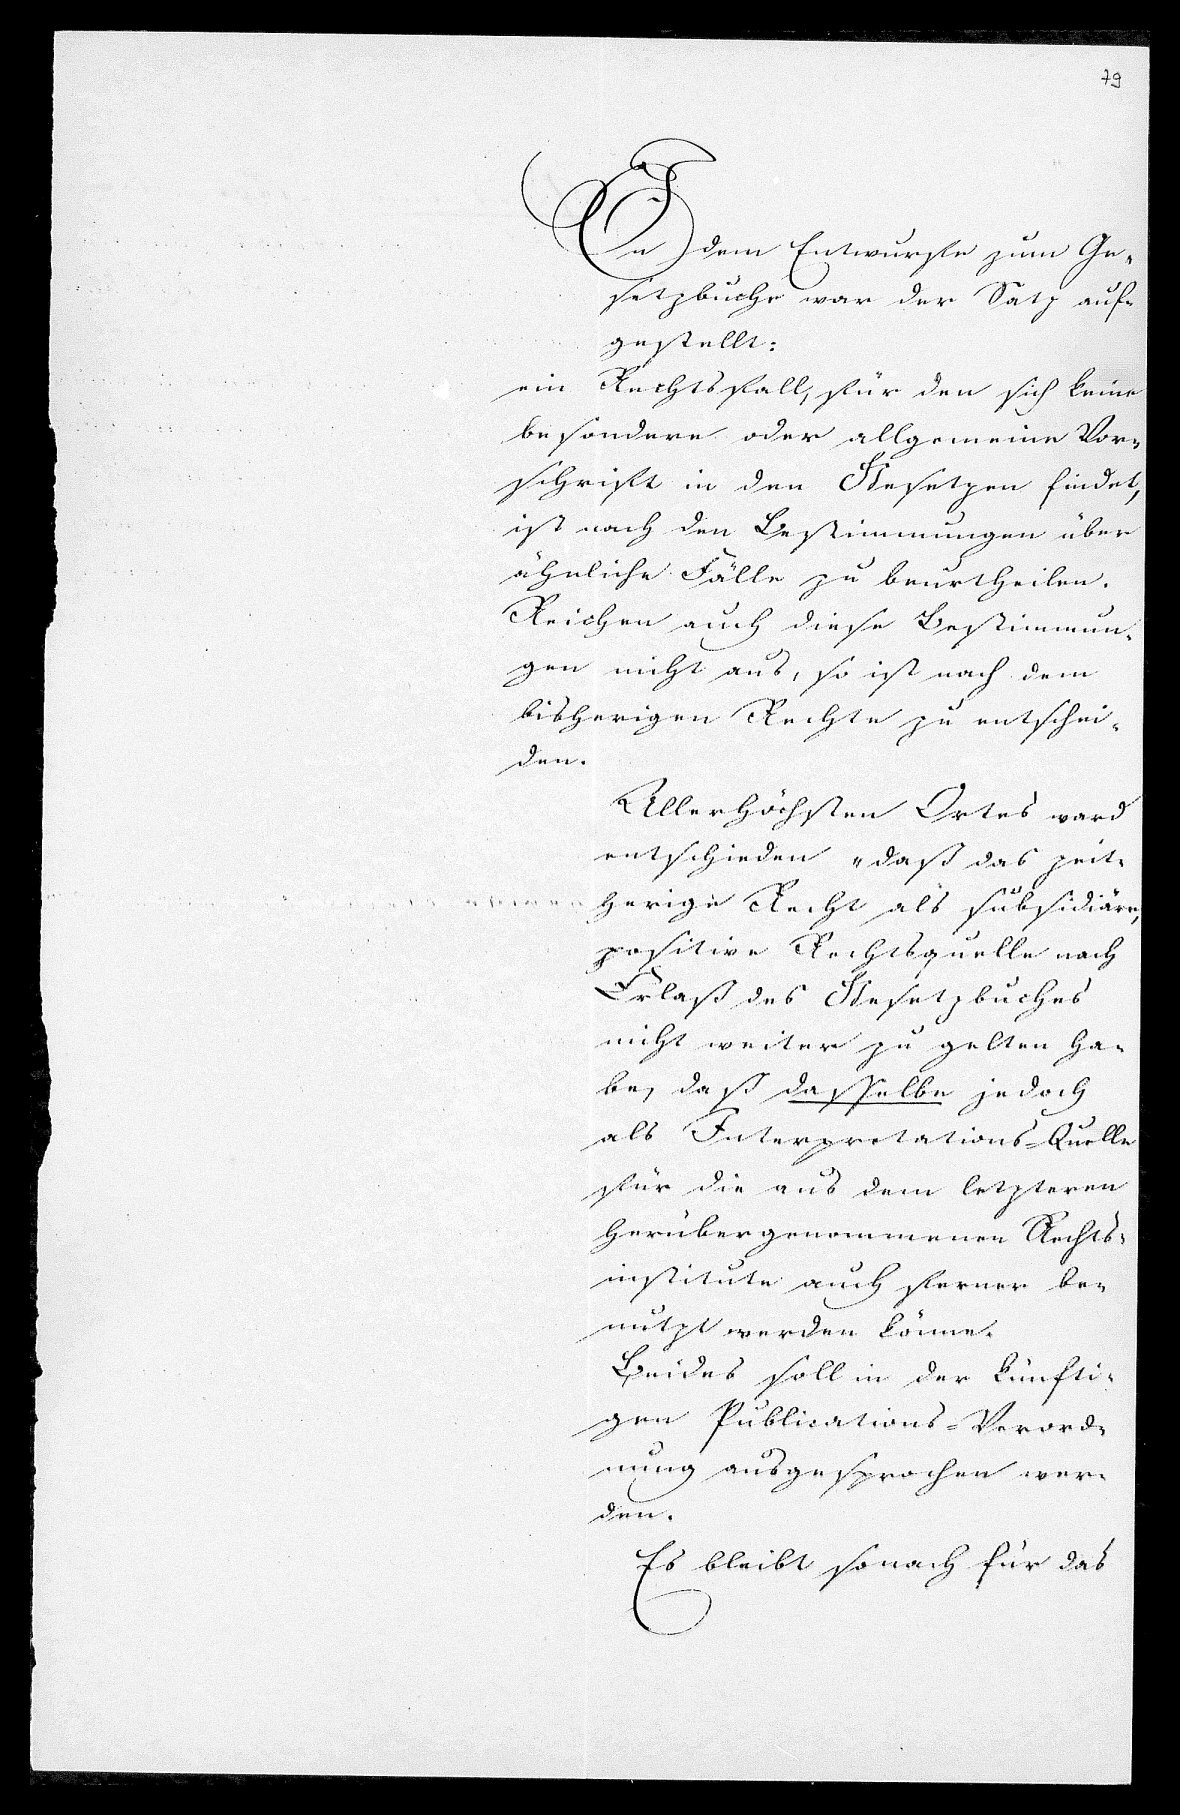 79
In dem Entwurfe zum Ge-
setzbuche war der Satz auf-
gestellt:
ein Rechtsfall, für den sich keine
besondere oder allgemeine Vor-
schrift in den Gesetzen findet,
ist nach den Bestimmungen über
ähnliche Fälle zu beurtheilen.
Reichen auch diese Bestimmun-
gen nicht aus, so ist nach dem
bisherigen Rechte zu entschei-
den.
Allerhöchsten Ortes ward
entschieden "daß das zeit-
herige Recht als subsidiäre,
positive Rechtsquelle nach
Erlaß des Gesetzbuches
nicht weiter zu gelten ha-
be, daß dasselbe jedoch
als Interpretations-Quelle
für die aus dem letzteren
herübergenommenen Rechts-
institute auch ferner be-
nutzt werden könne.
Beides soll in der künfti-
gen Publications-Verord-
nung ausgesprochen wer-
den.
Es bleibt sonach für das